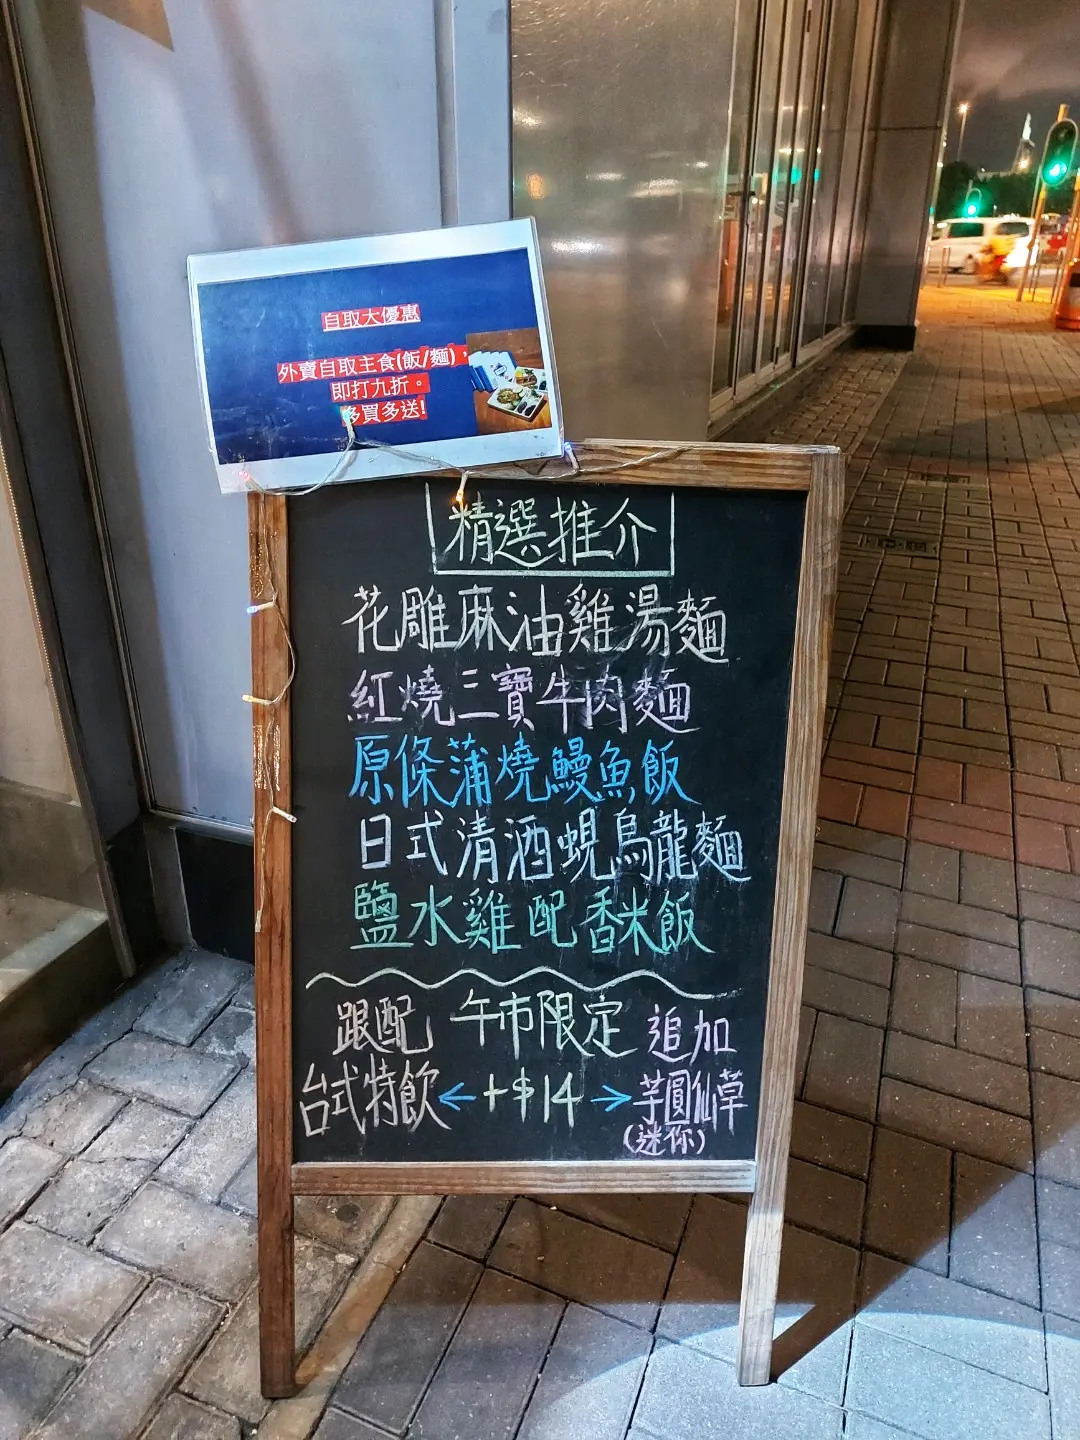 自取大優惠
外賣自取主食(飯/麵)，
即打九折。
多買多送!
精選推介
花雕麻油雞湯麵
紅燒三寶牛肉麵
原條蒲燒鰻魚飯
日式清酒蜆烏龍麵
鹽水雞配香米飯
跟配 午市限定 追加
台式特飲←+$14→芋圓仙草
(迷你)